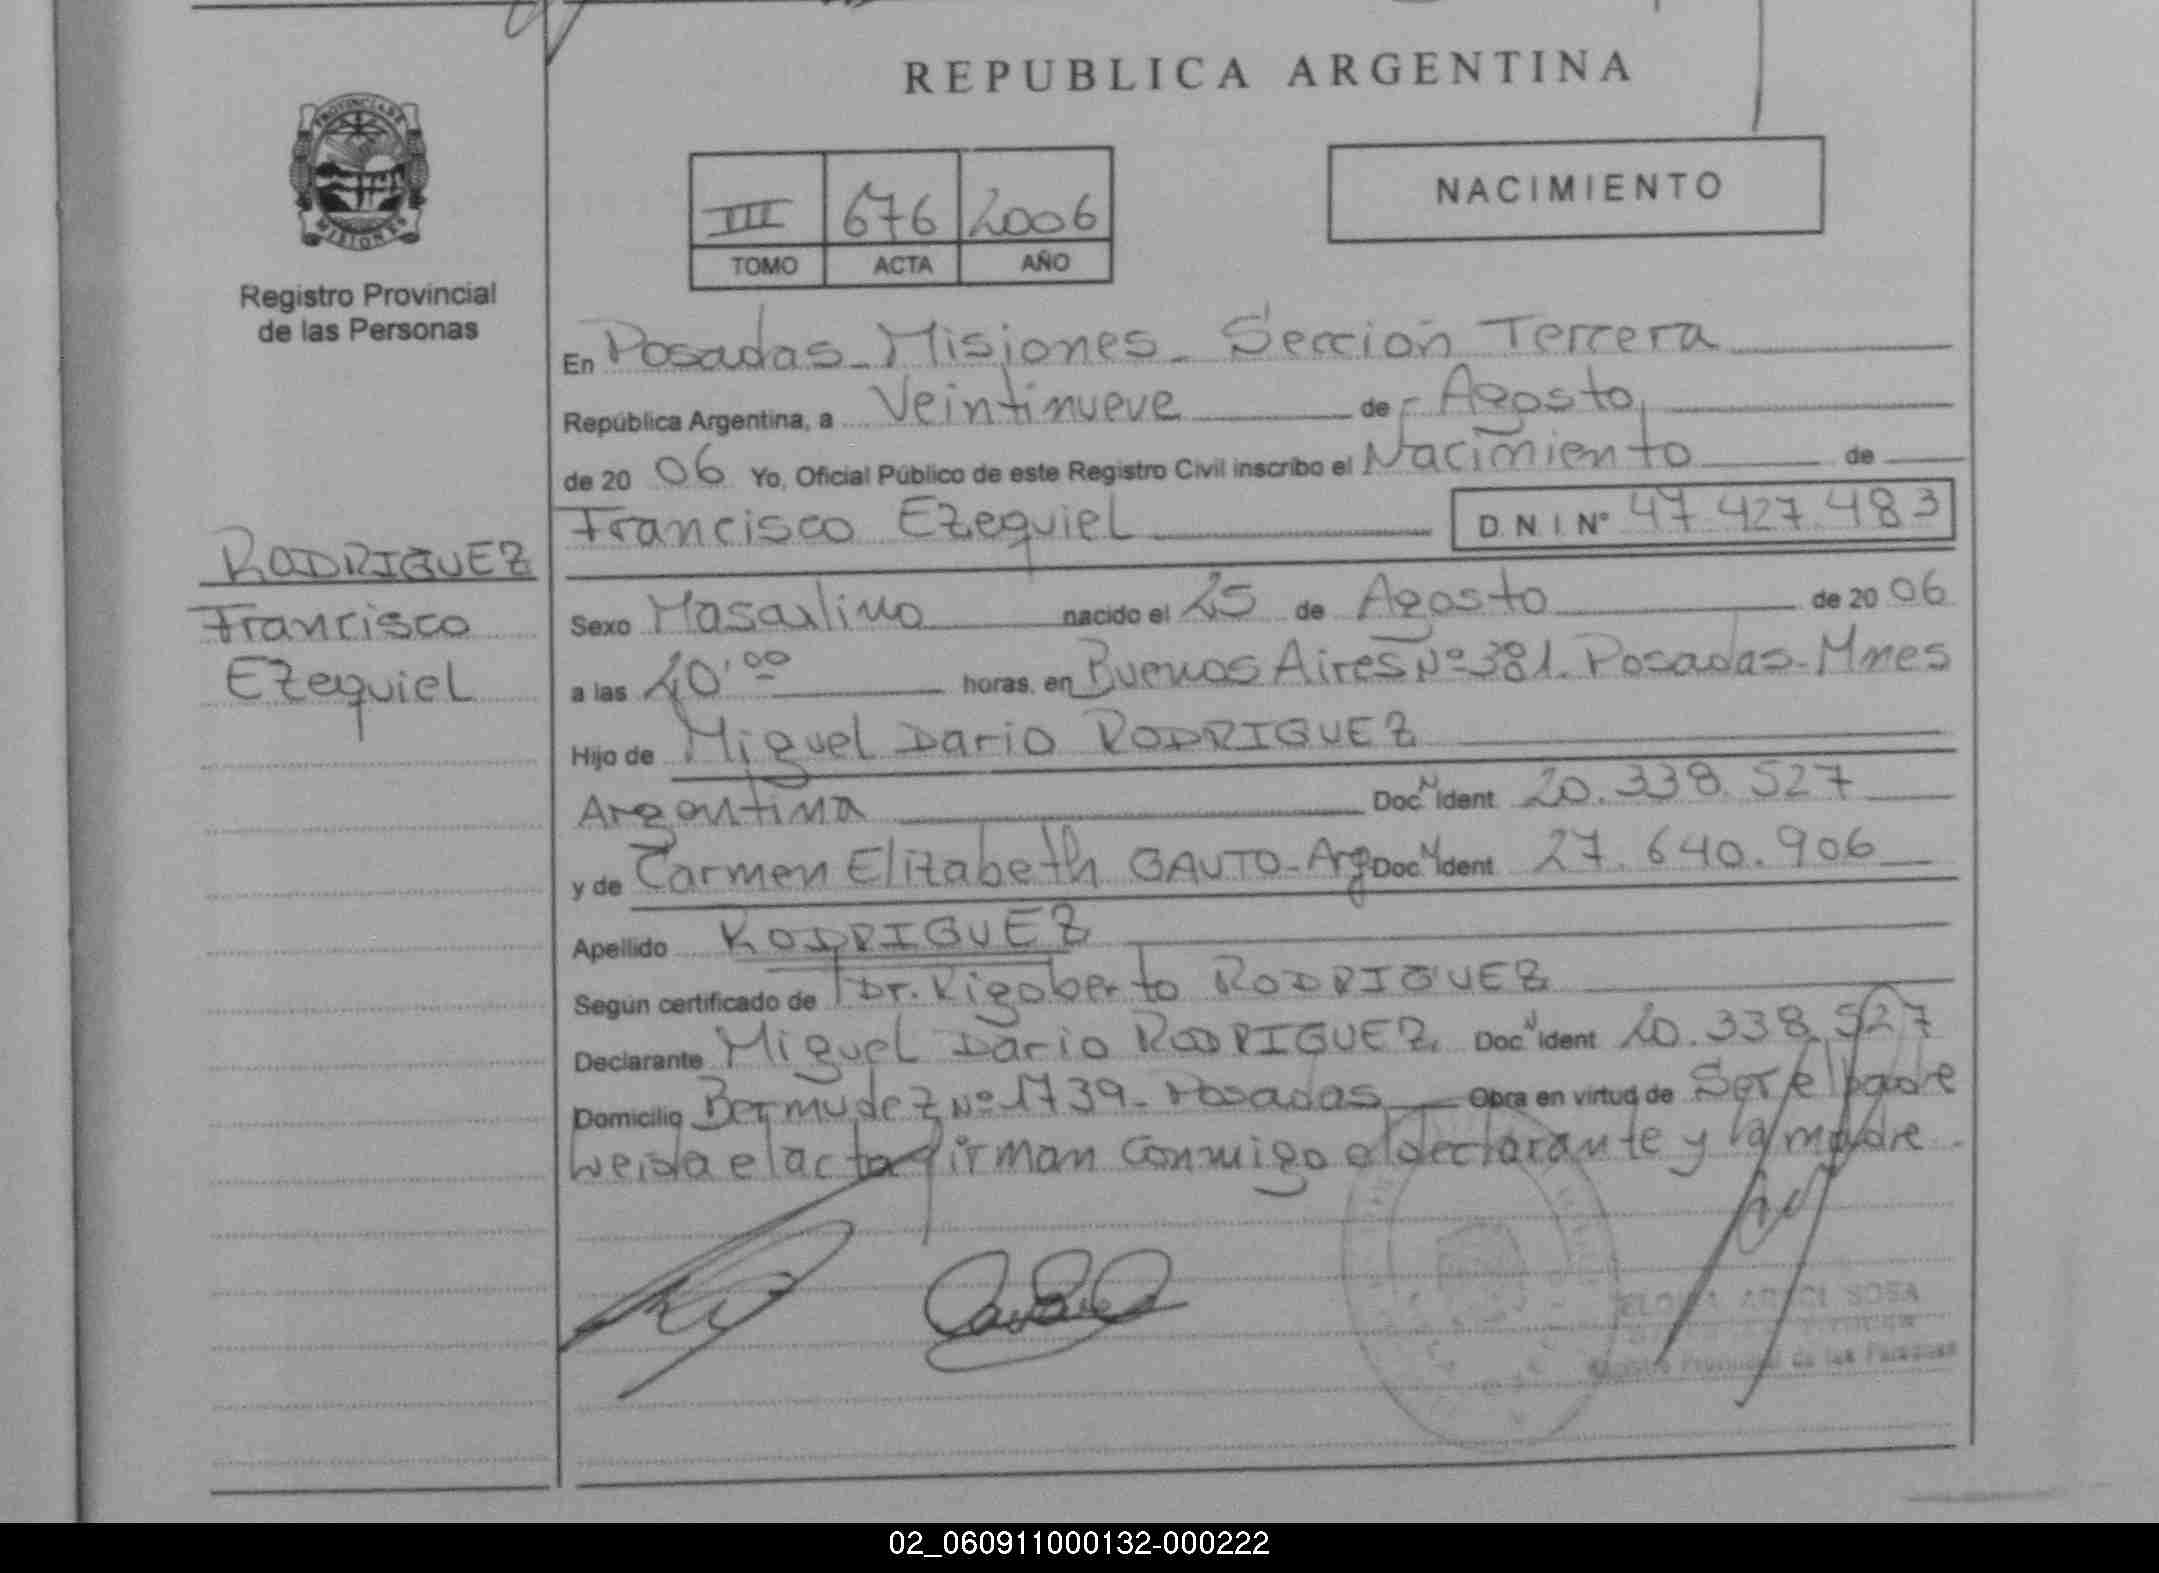 REPUBLICA ARGENTINA
PROVINCIA DE
MISIONES
Registro Provincial
de las Personas
III 676 2006
TOMO ACTA AÑO
NACIMIENTO
En Posadas - Misiones - Sección Tercera
República Argentina, a Veintinueve de Agosto
de 20 06 Yo, Oficial Público de este Registro Civil inscribo el Nacimiento de
Francisco Ezequiel D N I Nº 47 427 483
RODRIGUEZ
Francisco
Ezequiel
Sexo Masculino nacido el 25 de Agosto de 20 06
a las 20'00 horas, en Buenos Aires Nº 381. Posadas - Mnes
Hijo de Miguel Dario RODRIGUEZ
Argentina Doc N Ident 20.338.527
y de Carmen Elizabeth GAUTO - Arg Doc N Ident 27.640.906
Apellido RODRIGUEZ
Según certificado de Dr. Rigoberto RODRIGUEZ
Declarante Miguel Dario RODRIGUEZ. Doc N Ident 20.338.527
Domicilio Bermudez Nº 1739 - Posadas Obra en virtud de Ser el padre
Leida el acta firman conmigo el declarante y la madre.
SOSA
Registro Provincial de las Personas
02_060911000132-000222